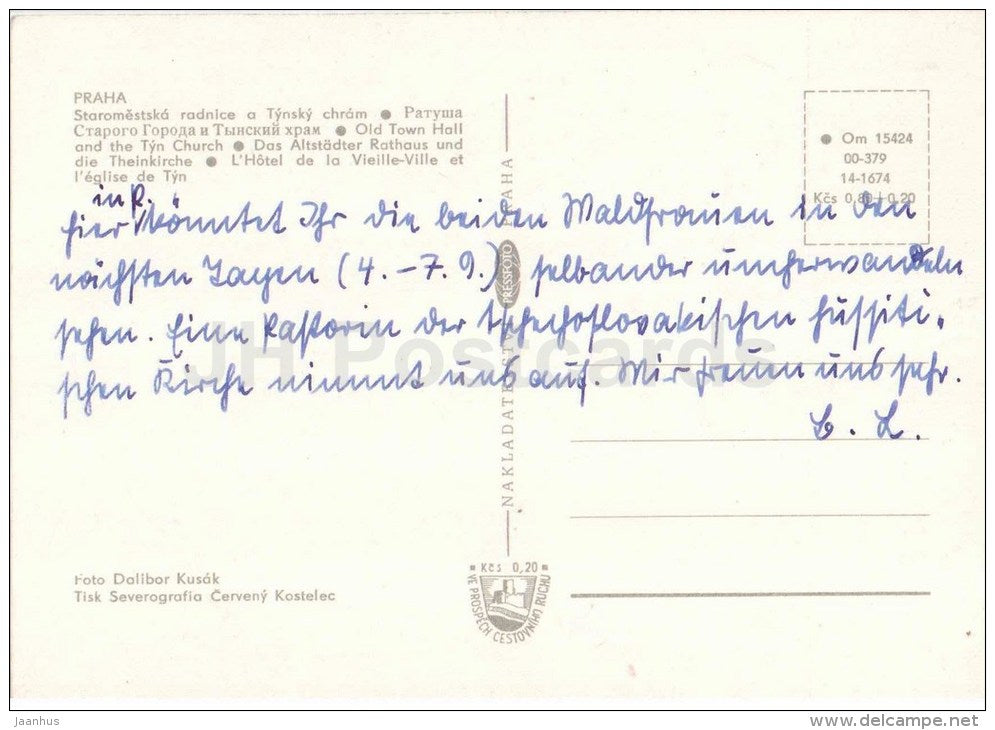 PRAHA
Staroměstská radnice a Týnský chrám ● Ратуша
Старого Города и Тынский храм ● Old Town Hall
and the Týn Church ● Das Altstädter Rathaus und
die Theinkirche ● L'Hôtel de la Vieille-Ville et
l'église de Týn
● Om 15424
00-379
14-1674
Kčs 0,80 + 0,20
in P.
hier könntet Ihr die beiden Waldfrauen in den
nächsten Tagen (4. – 7. 9.) selbander umherwandeln
sehen. Eine Pastorin der tschechoslovakischen hussiti-
schen Kirche nimmt uns auf. Wir freuen uns sehr.
L. L.
NAKLADATELSTVÍ PRESSFOTO PRAHA
Foto Dalibor Kusák
Tisk Severografia Červený Kostelec
Kčs 0,20
VE PROSPĚCH CESTOVNÍHO RUCHU
JH Postcards
Jaanhus
www.delcampe.net